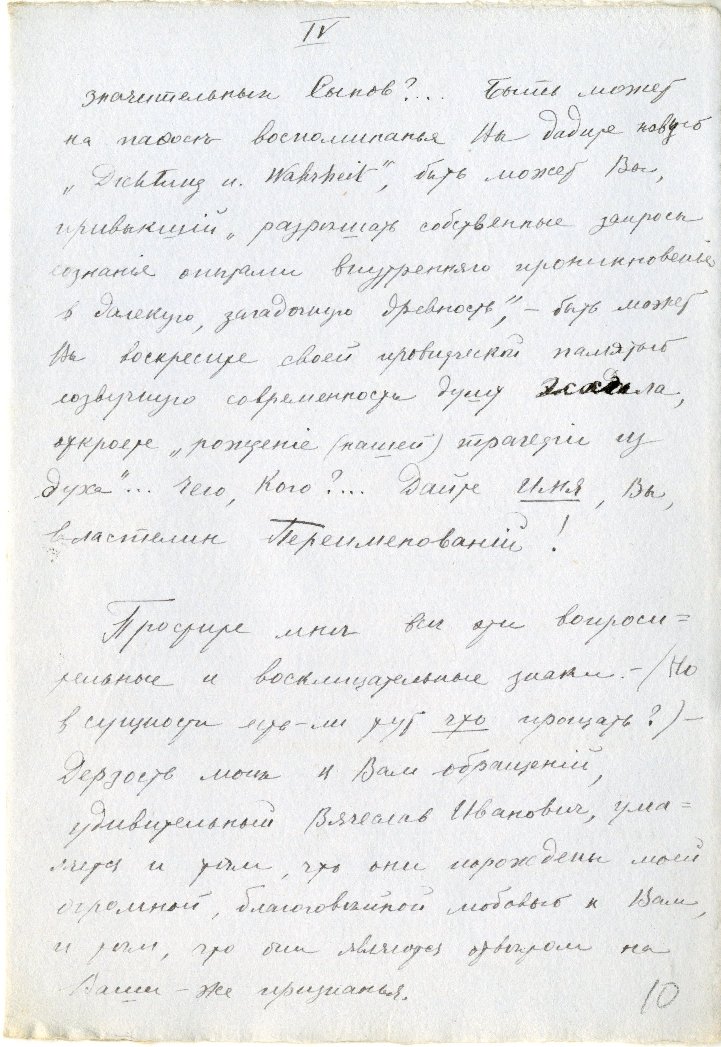 IV
значительных Сынов?... Быть можетъ
на пафосъ воспоминанья Вы дадите новую
„Dichtung u. Wahrheit“, быть можетъ Вы,
привыкшій „разрѣшать собственные запросы
сознанія опытами внутренняго проникновенія
въ далекую, загадочную древность“, – быть можетъ
Вы воскресите своей провидческой памятью
созвучную современности душу
откроете „рожденіе (нашей) трагедіи из
духа“... Чего, Кого?... Дайте Имя, Вы,
властелин Переименованій!
Простите мнѣ все эти вопроси=
тельные и восклицательные знаки. – (Но
в сущности есть-ли тут что прощать?) –
Дерзость моих к Вам обращеній,
удивительный Вячеслав Иванович, ума=
ляется и тѣм, что они порождены моей
огромной, благоговѣйной любовью к Вам,
и тѣм, что они являются отвѣтом на
Ваши – же признанья.
10